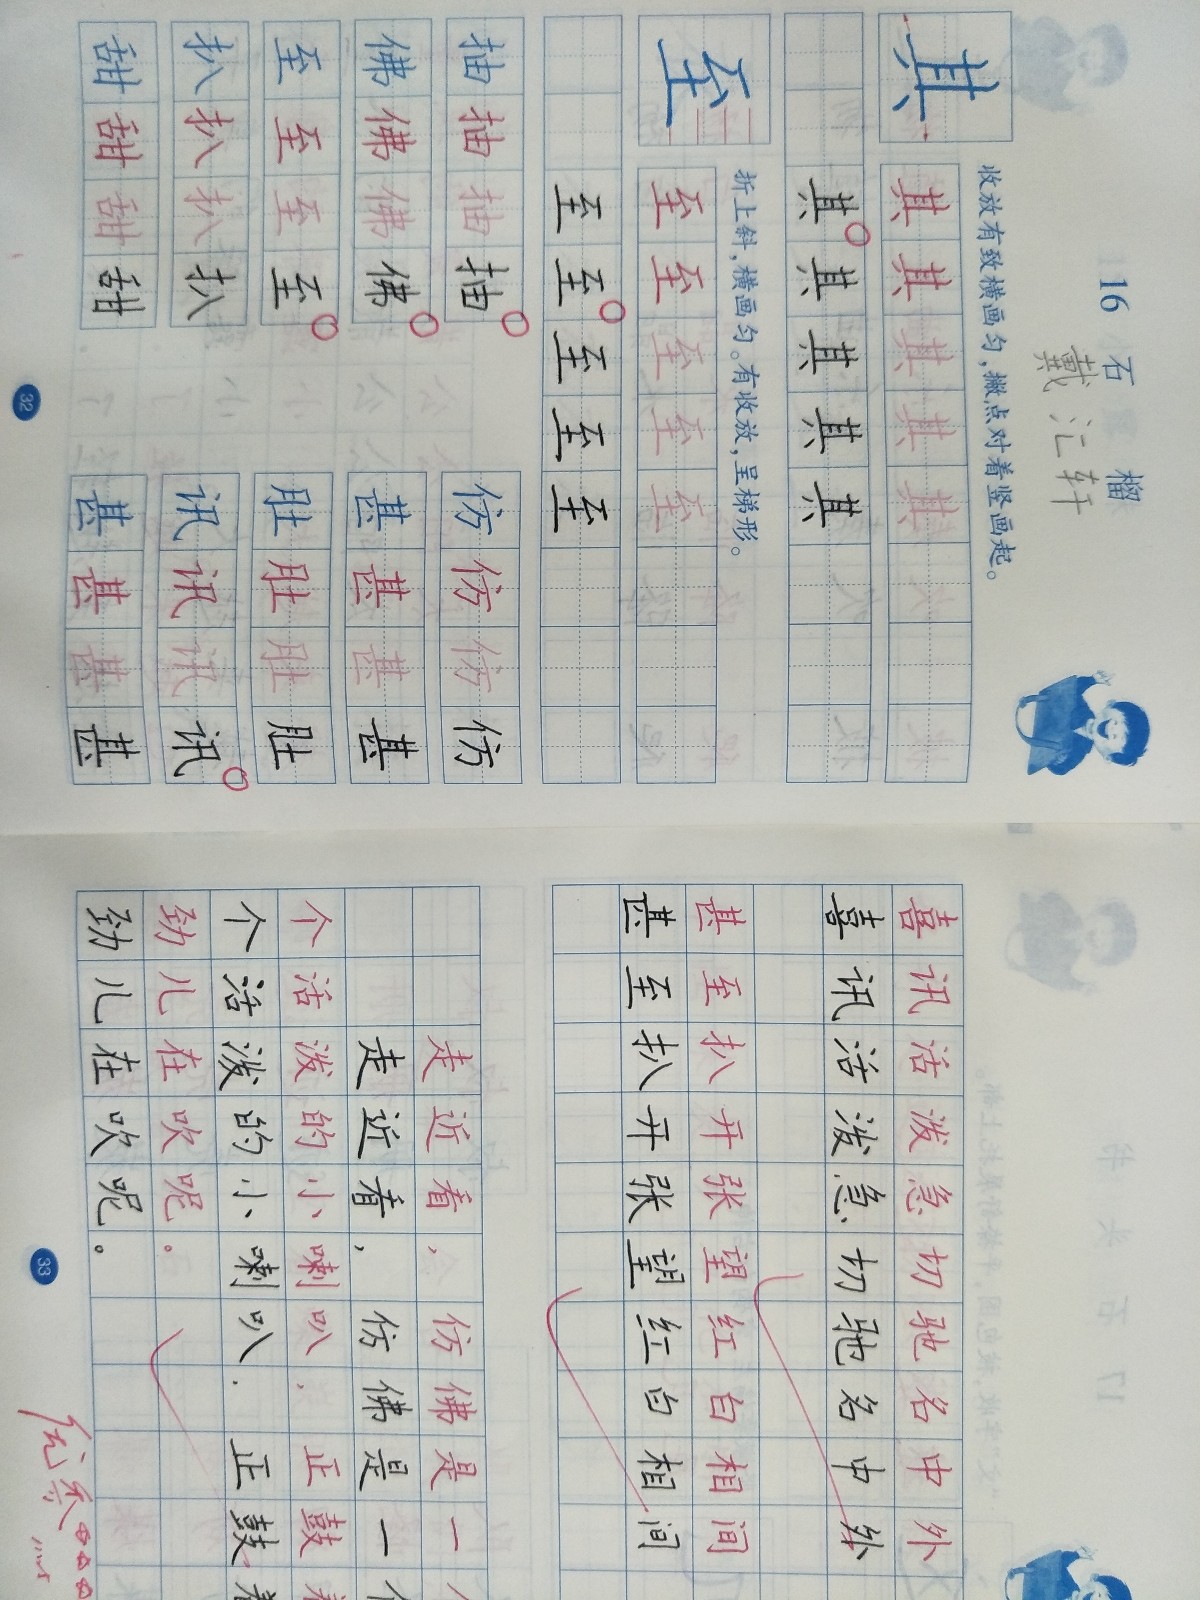 16 石榴
戴汇轩
收放有致横画匀，撇点对着竖画起。
其 其其其其其
其其其其其
折上斜，横画匀。有收放，呈梯形。
至 至至至至至
至至至至至
抽抽抽抽 仿仿仿仿
佛佛佛佛 甚甚甚甚
至至至至 肚肚肚肚
扒扒扒扒 讯讯讯讯
甜甜甜甜 甚甚甚甚
32
喜讯活泼急切驰名中外
喜讯活泼急切驰名中外
甚至扒开张望红白相间
甚至扒开张望红白相间
走近看，仿佛是一个
走近看，仿佛是一个
个活泼的小喇叭，正鼓着
个活泼的小喇叭.正鼓着
劲儿在吹呢。
劲儿在吹呢。
33
优秀